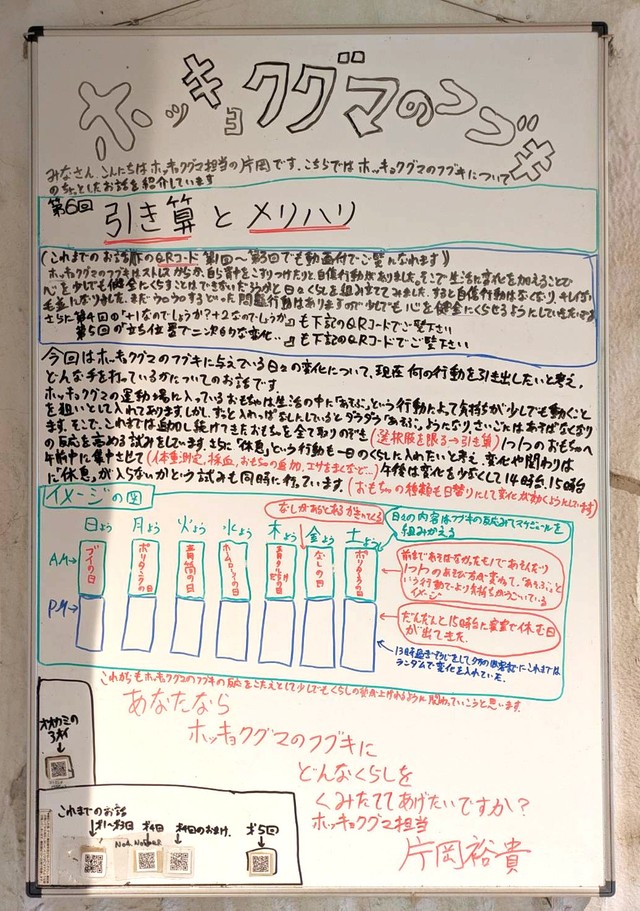 ホッキョクグマのフブキ
みなさん こんにちは ホッキョクグマ担当の片岡です。こちらではホッキョクグマのフブキについて
のちょっとしたお話を紹介しています
第6回 引き算とメリハリ
(これまでのお話 下のQRコード 第1回〜第3回でも動画付でご覧になれます)
ホッキョクグマのフブキはストレスからか、自ら背中をこすりつけたりと自傷行動がありました。そこで生活に変化を加えることで
心を少しでも健全にくらすことはできないだろうかと日々くらしを組み立ててみました。すると自傷行動はなくなり、キレイな
毛並になりました。まだウロウロするといった問題行動はありますので少しでも心を健全にくらせるようにしていきたいです
さらに第4回の『+1なのでしょうか?+2なのでしょうか』も下記のQRコードでご覧下さい
第5回の『立ち位置で二次的な変化…』も下記のQRコードでご覧下さい
今回はホッキョクグマのフブキに与えている日々の変化について、現在何の行動を引き出したいと考え、
どんな手を打っているかについてのお話です。
ホッキョクグマの運動場に入っているおもちゃは生活の中に「あそぶ」という行動によって気持ちが少しでも動くこと
を狙いとして入れてあります。しかし、ずっと入れっぱなしにしているとダラダラ「あそぶ」ようになり、さいごにはあそばなくなり
ます。そこで、これまでは追加し続けてきたおもちゃを全て取りのぞき(選択肢を限る→引き算)1つ1つのおもちゃへ
の反応を高める試みをしています。さらに「休息」という行動も一日のくらしに入れたいと考え、変化や関わりは
午前中に集中させて(体重測定、採血、おもちゃの追加、エサをまくなど…)午後は変化を少なくして14時台、15時台
に「休息」が入らないかという試みも同時に行っています。(おもちゃの種類も日替りにして変化が効くようにしています)
イメージの図
なしがあるとあるがきいてくる
日々の内容はフブキの反応みてスケジュールを
組みかえる
日よう 月よう 火よう 水よう 木よう 金よう 土よう
AM→ ブイの日 ポリタンクの日 青筒の日 なしの日 ポリタンクの日
前まであそばなかったモノであそんだり
1つ1つのあそび方が変わって、「あそぶ」と
いう行動でより気持ちがうごいている
イメージ
PM→
だんだんと15時台に寝室で休む日
が出てきた。
ランダムで変化を入れていた。
これからもホッキョクグマのフブキの反応をこたえとして少しでもくらしの質が上げれるように関わっていこうと思います。
あなたなら
ホッキョクグマのフブキに
どんなくらしを
くみたててあげたいですか?
ホッキョクグマ担当
片岡裕貴
オオカミの
↓
これまでのお話
第1〜第3回 第4回 第4回のおまけ 第5回